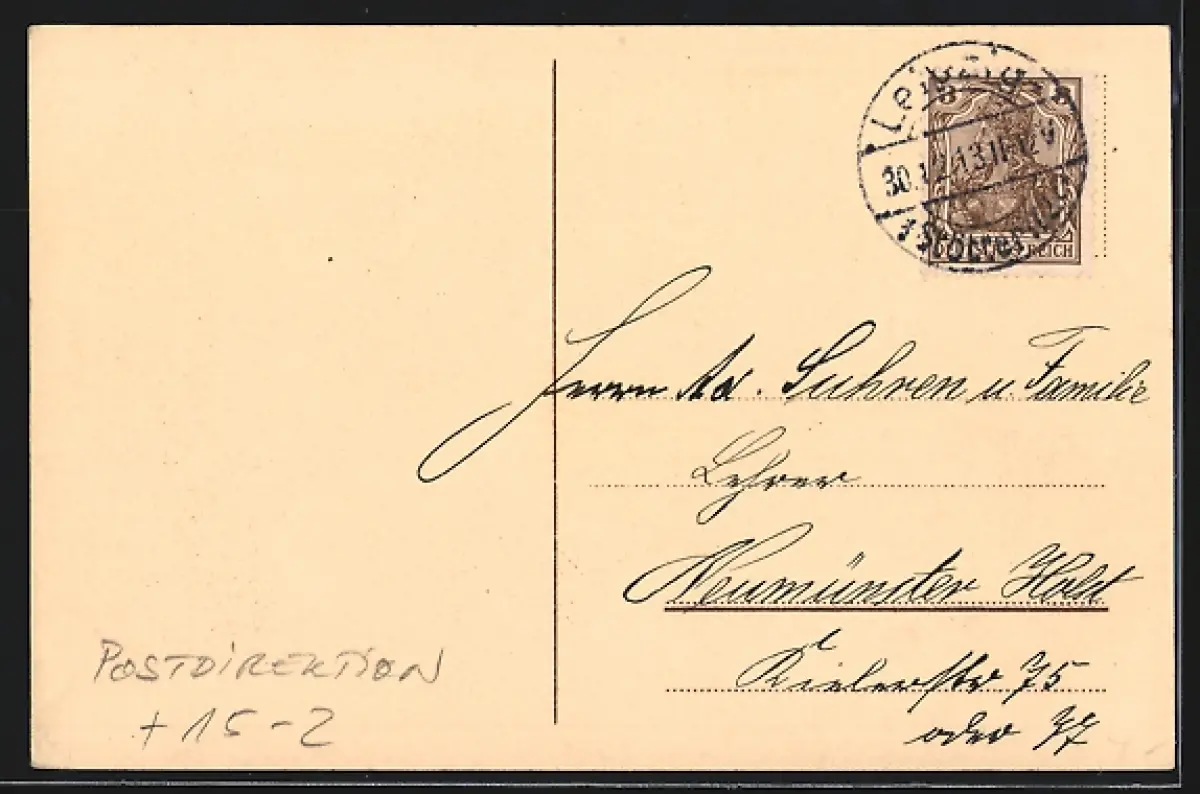 Leipzig
30.12.13.11-12V
Stötteritz
REICH
Herrn Ad. Suhren u. Familie
Lehrer
Neumünster Holst
Kielerstr 75
oder 77
POSTDIREKTION
+ 15 - 2